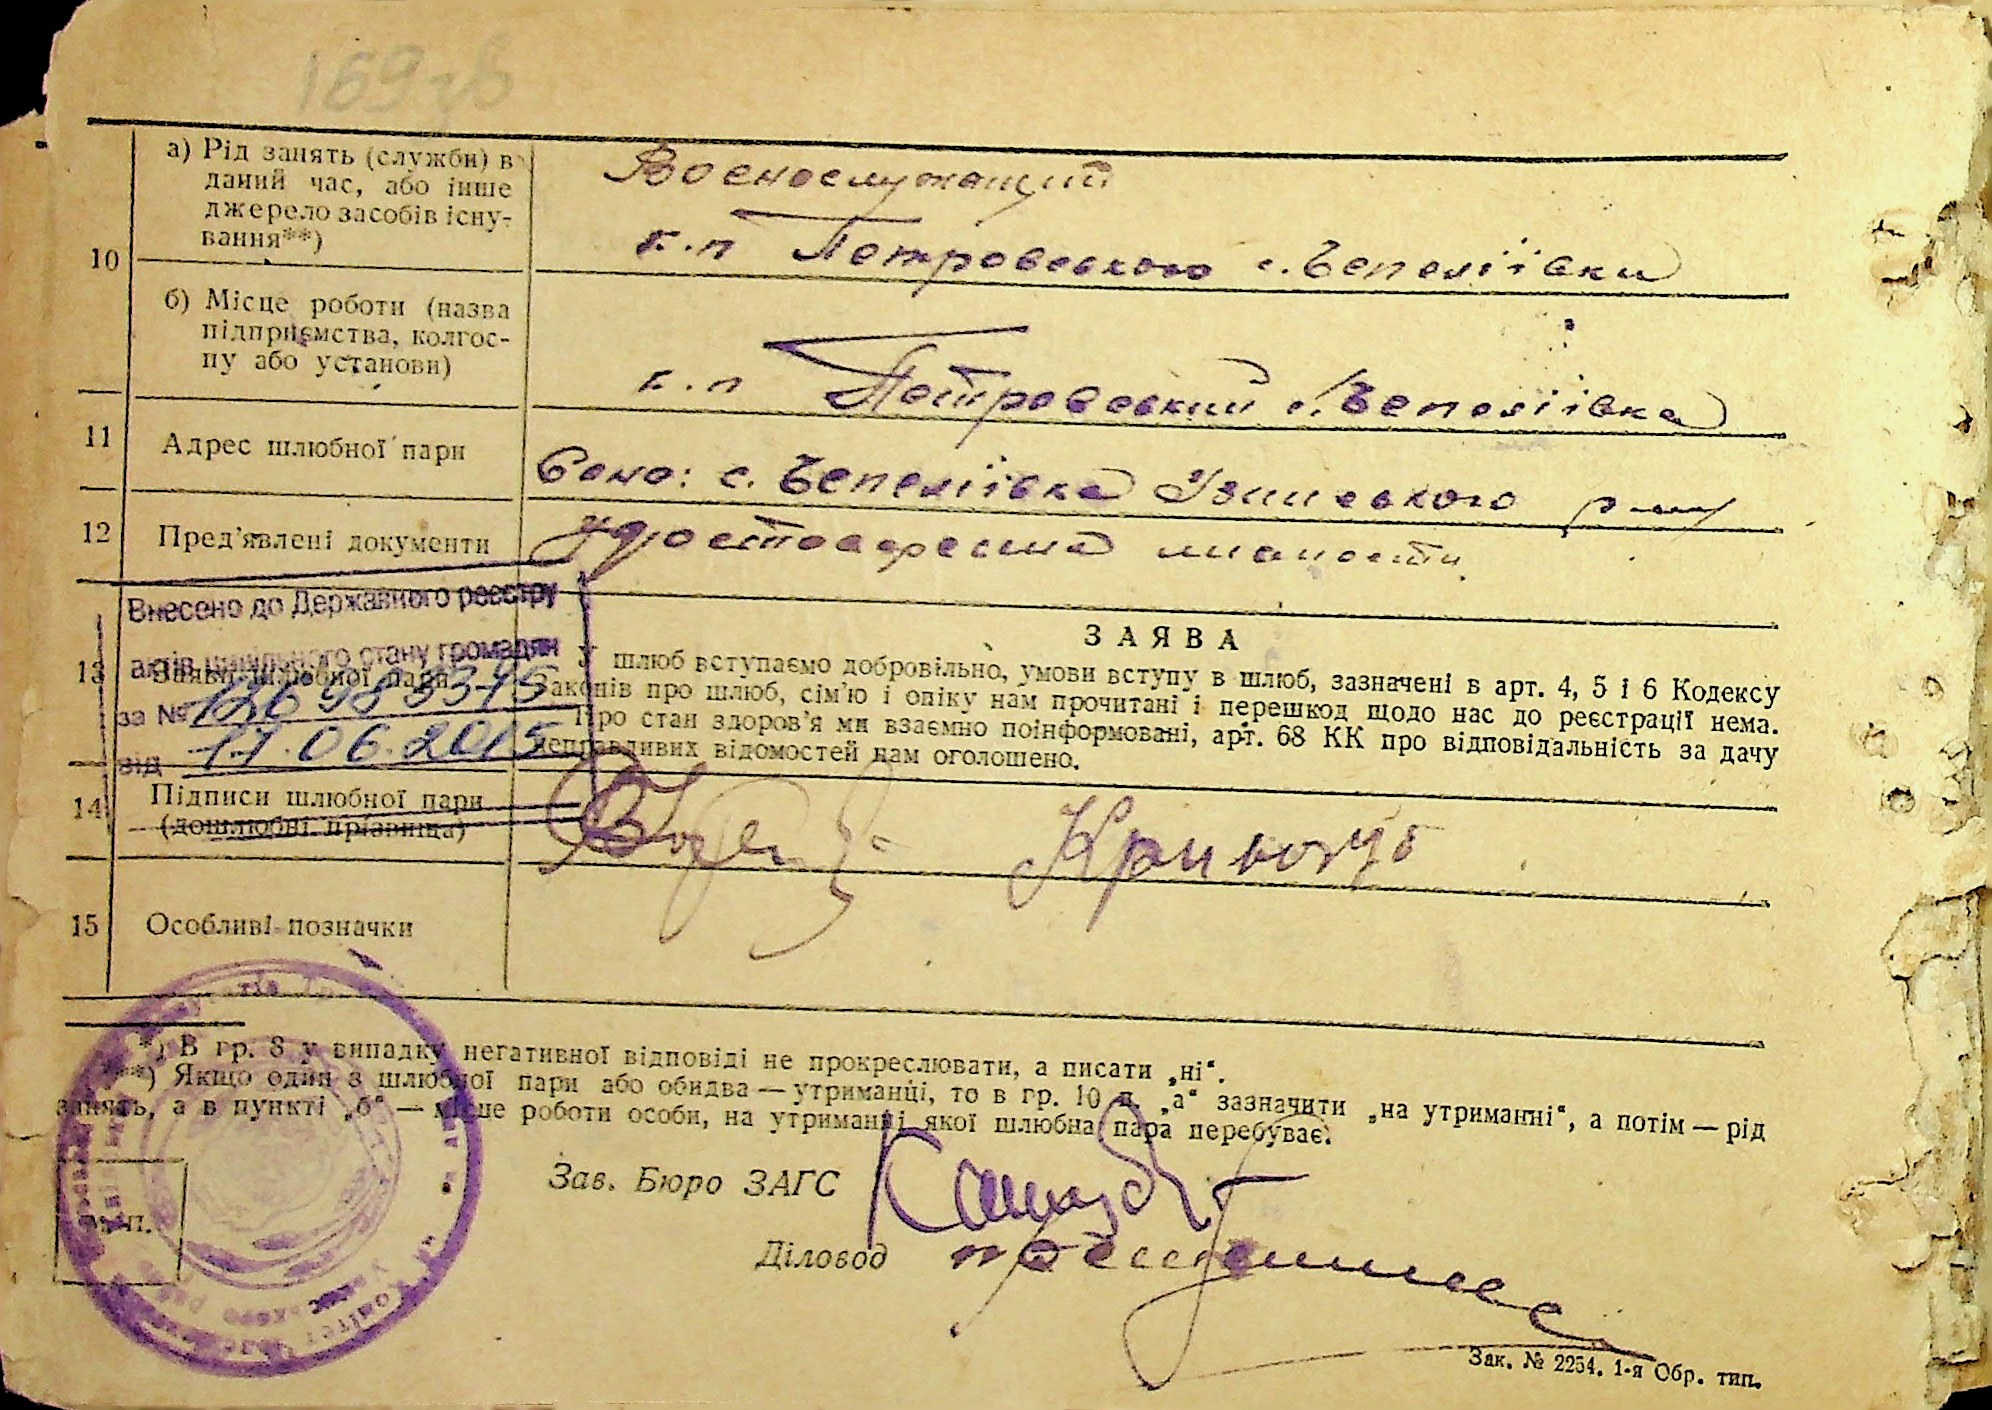 169 зв
10
а) Рід занять (служби) в
даний час, або інше
джерело засобів існу-
вання**)
Военослужащий
к.п Петровського с. Чепеліївки
б) Місце роботи (назва
підприємства, колгос-
пу або установи)
к.п Петровський с. Чепеліївка
11
Адрес шлюбної пари
Село: с. Чепеліївка Узинського р-ну
12
Пред'явлені документи
удостоверение личности
Внесено до Державного реєстру
актів цивільного стану громадян
за №
від 17.06.2015
13
Заява шлюбної пари
ЗАЯВА
У шлюб вступаємо добровільно, умови вступу в шлюб, зазначені в арт. 4, 5 і 6 Кодексу
законів про шлюб, сім'ю і опіку нам прочитані і перешкод щодо нас до реєстрації нема.
Про стан здоров'я ми взаємно поінформовані, арт. 68 КК про відповідальність за дачу
неправдивих відомостей нам оголошено.
14
Підписи шлюбної пари
(дошлюбні прізвища)
15
Особливі позначки
*) В гр. 8 у випадку негативної відповіді не прокреслювати, а писати „ні“.
**) Якщо один з шлюбної пари або обидва — утриманці, то в гр. 10 п. „а“ зазначити „на утриманні“, а потім — рід
занять, а в пункті „б“ — місце роботи особи, на утриманні якої шлюбна пара перебуває.
М. П.
Зав. Бюро ЗАГС
Діловод
Зак. № 2254. 1-я Обр. тип.